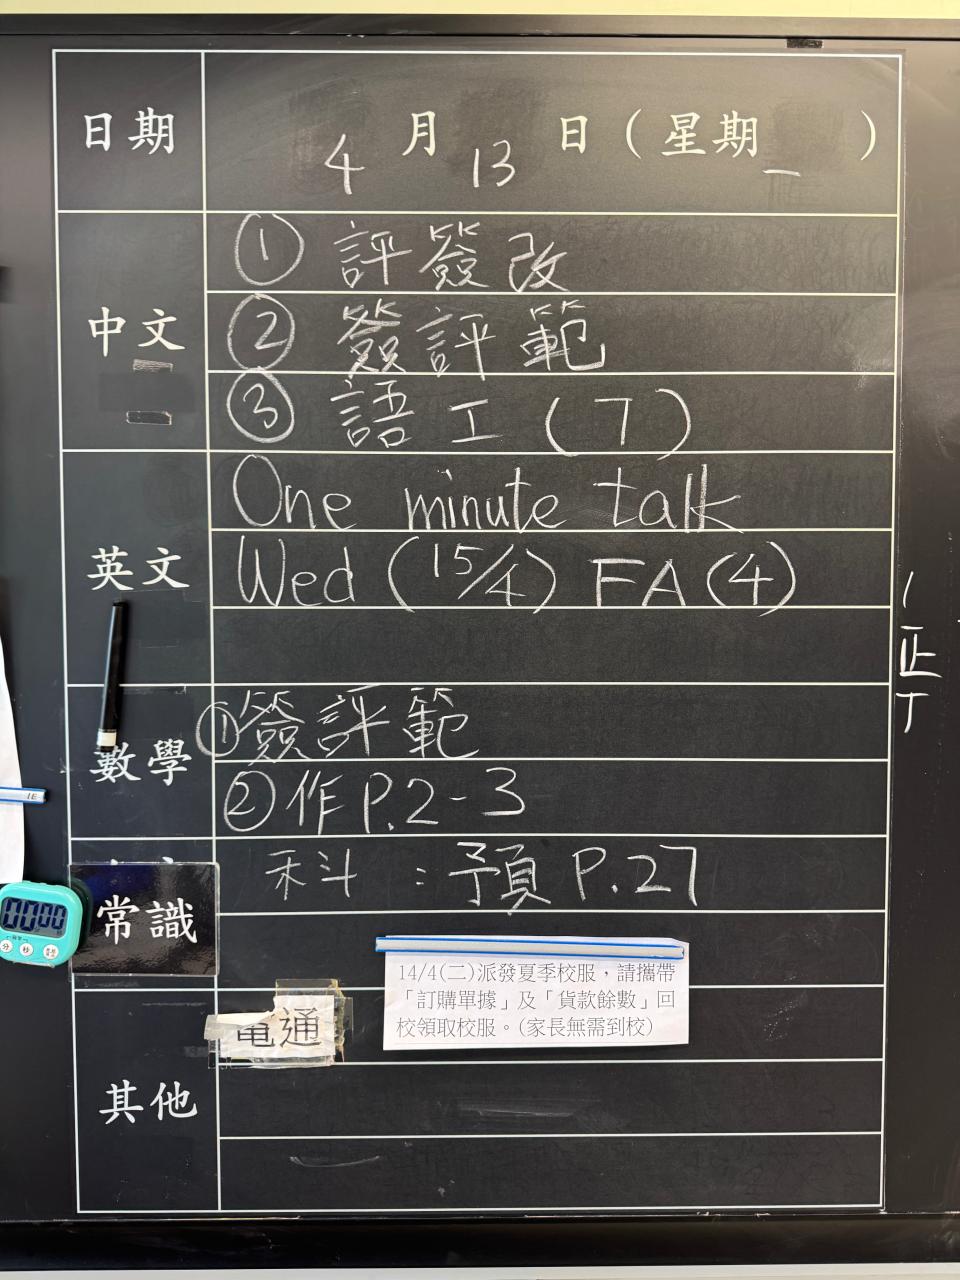 日期 4月13日(星期一)
中文
① 評簽改
② 簽評範
③ 語工(7)
英文
One minute talk
Wed (15/4) FA(4)
數學
①簽評範
②作P.2-3
常識
科:預P.27
14/4(二)派發夏季校服,請攜帶
「訂購單據」及「貨款餘數」回
校領取校服。(家長無需到校)
電通
其他
00 00
分 秒